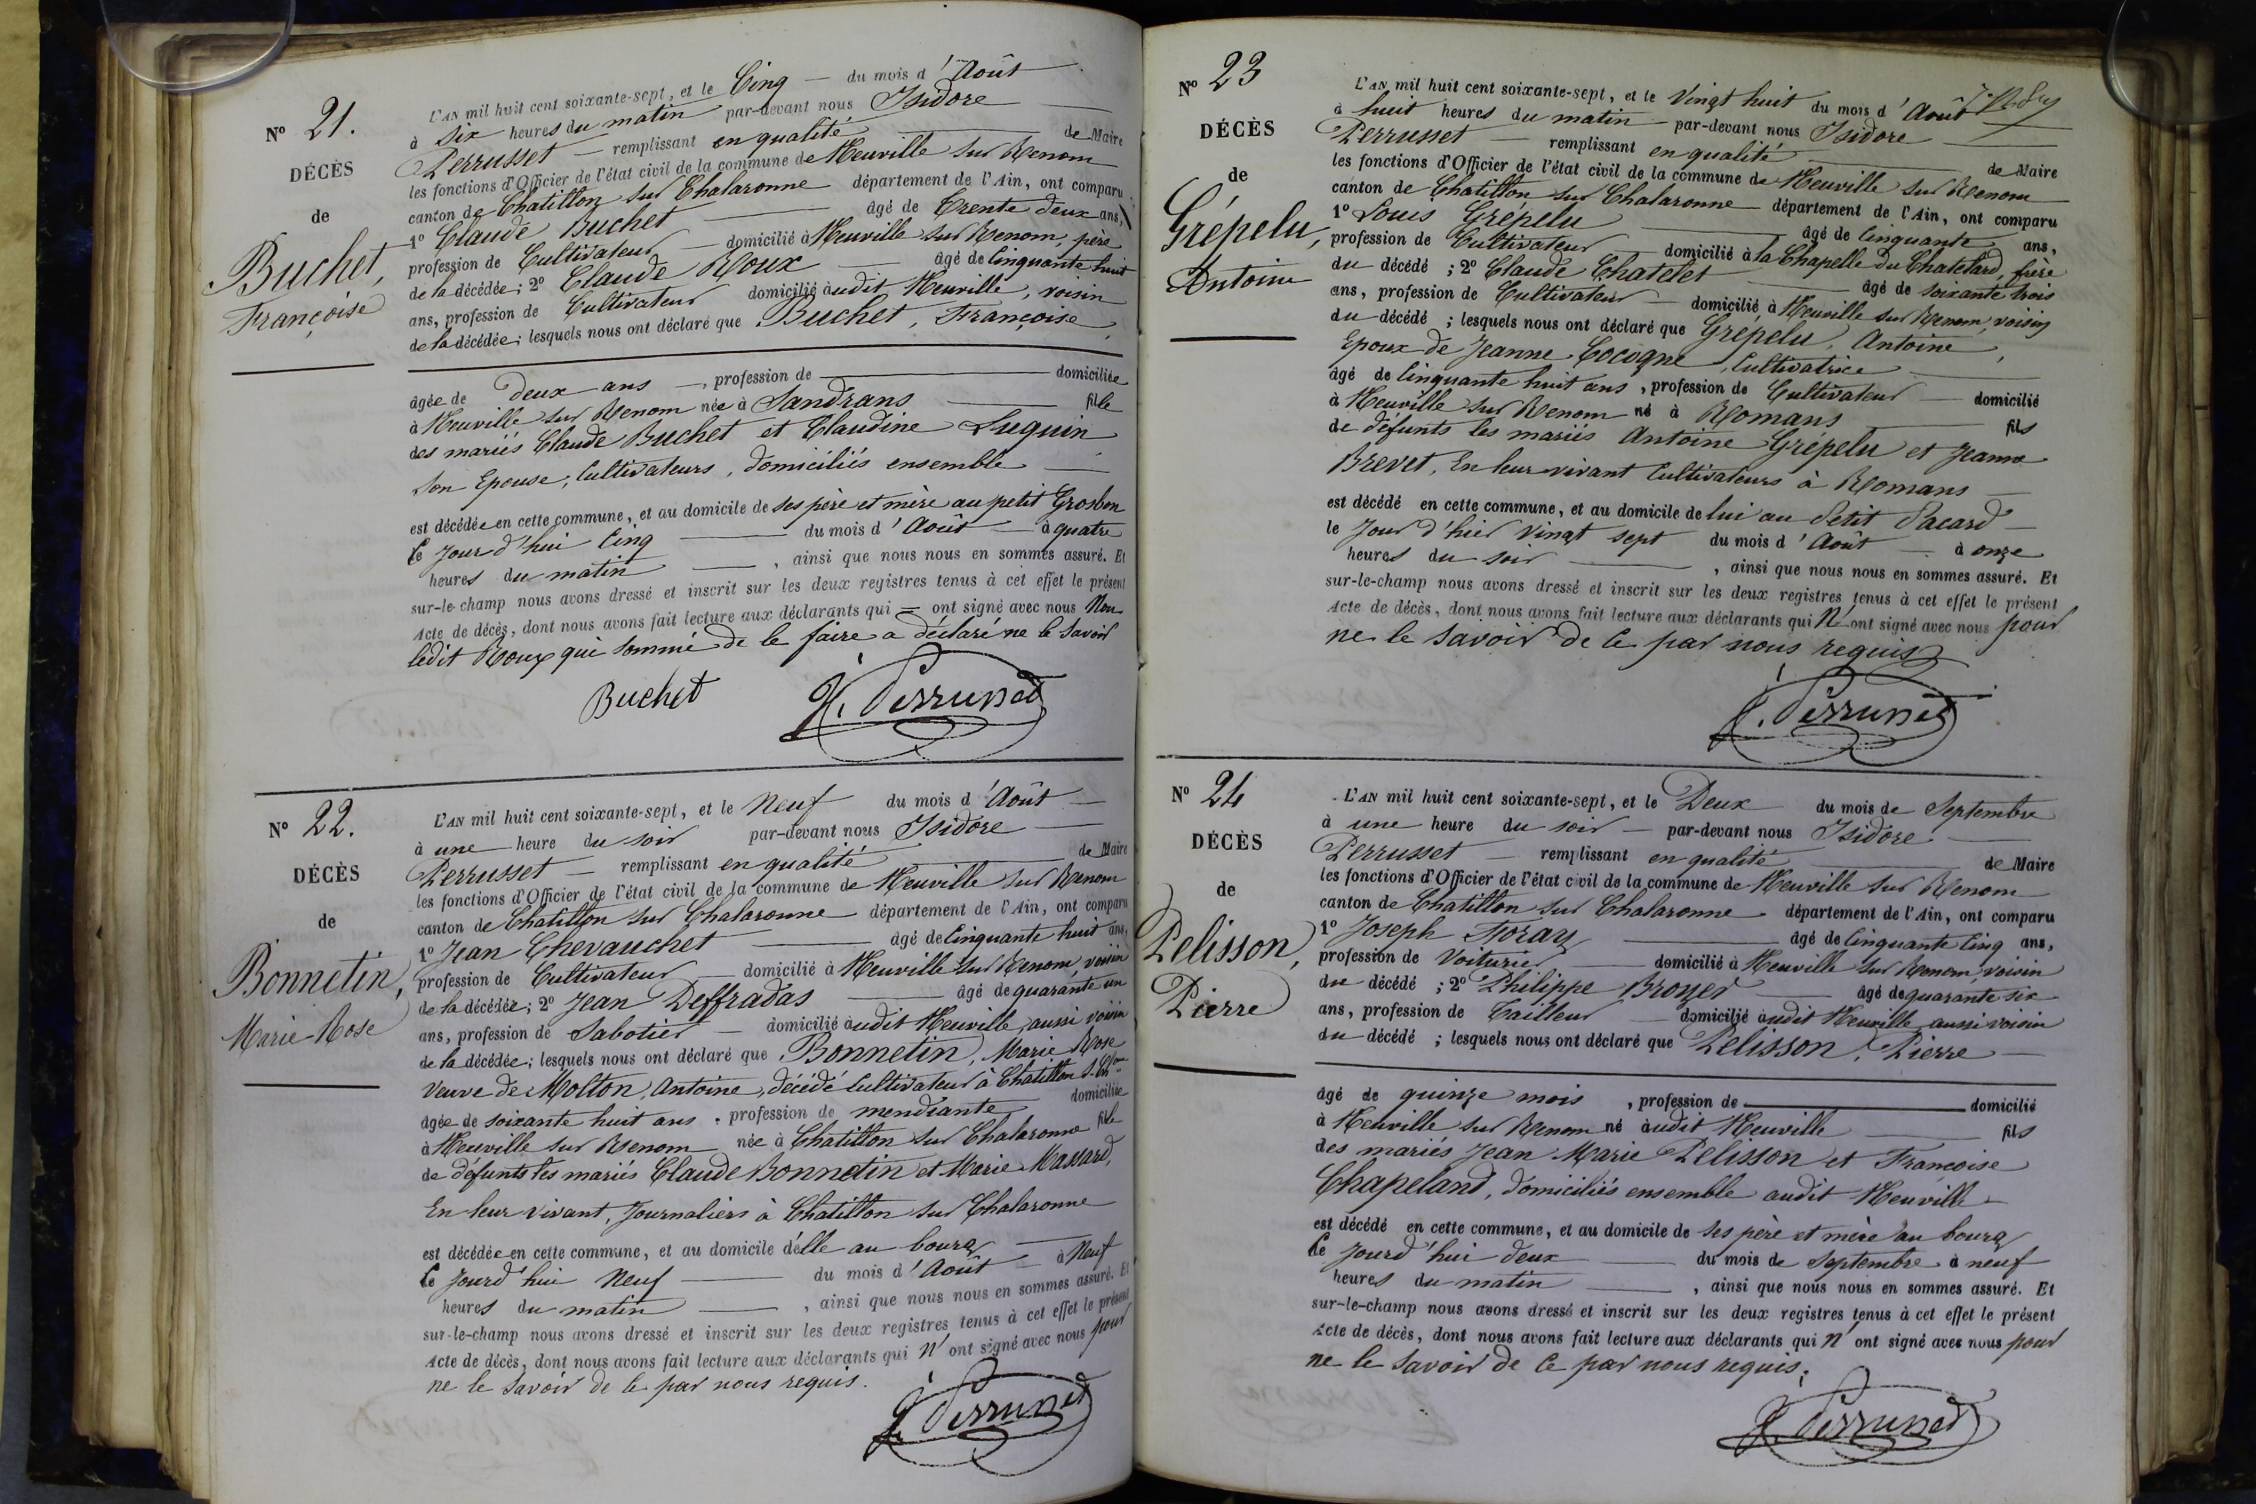 N° 21.
DÉCÈS
de
Buchet,
Françoise
L'AN mil huit cent soixante-sept, et le Cinq du mois d'Août
à six heures du matin par-devant nous Isidore
Perrusset remplissant en qualité de Maire
les fonctions d'Officier de l'état civil de la commune de Neuville sur Renom
canton de Chatillon sur Chalaronne département de l'Ain, ont comparu
1° Claude Buchet âgé de trente deux ans,
profession de Cultivateur domicilié à Neuville sur Renom, père
de la décédée; 2° Claude Roux âgé de Cinquante huit
ans, profession de Cultivateur domicilié audit Neuville, voisin
de la décédée; lesquels nous ont déclaré que Buchet, Françoise,
âgée de deux ans, profession de domiciliée
à Neuville sur Renom née à Sandrans fille
des mariés Claude Buchet et Claudine Luquin
son Epouse, Cultivateurs, domiciliés ensemble
est décédée en cette commune, et au domicile de ses père et mère au petit Grosbon
Ce jour d'hui Cinq du mois d'Août à quatre
heures du matin, ainsi que nous nous en sommes assuré. Et
sur-le-champ nous avons dressé et inscrit sur les deux registres tenus à cet effet le présent
Acte de décès, dont nous avons fait lecture aux déclarants qui ont signé avec nous Non
ledit Roux qui sommé de le faire a déclaré ne le savoir
Buchet I. Perrusset
N° 22.
DÉCÈS
de
Bonnetin,
Marie Rose
L'AN mil huit cent soixante-sept, et le Neuf du mois d'Août
à une heure du soir par-devant nous Isidore
Perrusset remplissant en qualité de Maire
les fonctions d'Officier de l'état civil de la commune de Neuville sur Renom
canton de Chatillon sur Chalaronne département de l'Ain, ont comparu
1° Jean Chevauchet âgé de Cinquante huit ans,
profession de Cultivateur domicilié à Neuville sur Renom, voisin
de la décédée; 2° Jean Deffradas âgé de quarante un
ans, profession de Sabotier domicilié audit Neuville, aussi voisin
de la décédée; lesquels nous ont déclaré que Bonnetin, Marie Rose
Veuve de Molton, Antoine, décédé Cultivateur à Chatillon s. Chnne
âgée de soixante huit ans, profession de mendiante domiciliée
à Neuville sur Renom née à Chatillon sur Chalaronne fille
de défunts les mariés Claude Bonnetin et Marie Massard,
En leur vivant, Journaliers à Chatillon sur Chalaronne
est décédée en cette commune, et au domicile d'elle au bourg
Ce jourd'hui Neuf du mois d'Août à Neuf
heures du matin, ainsi que nous nous en sommes assuré. Et
sur-le-champ nous avons dressé et inscrit sur les deux registres tenus à cet effet le présent
Acte de décès, dont nous avons fait lecture aux déclarants qui n'ont signé avec nous pour
ne le savoir de Ce par nous requis.
I. Perrusset
N° 23
DÉCÈS
de
Grépelu,
Antoine
L'AN mil huit cent soixante-sept, et le Vingt huit du mois d'Août
à huit heures du matin par-devant nous Isidore
Perrusset remplissant en qualité de Maire
les fonctions d'Officier de l'état civil de la commune de Neuville sur Renom
canton de Chatillon sur Chalaronne département de l'Ain, ont comparu
1° Louis Grépelu âgé de Cinquante ans,
profession de Cultivateur domicilié à la Chapelle du Chatelard, frère
du décédé; 2° Claude Chatelet âgé de soixante trois
ans, profession de Cultivateur domicilié à Neuville sur Renom, voisin
du décédé; lesquels nous ont déclaré que Grépelu, Antoine,
Epoux de Jeanne Cocogne, Cultivatrice
âgé de Cinquante huit ans, profession de Cultivateur domicilié
à Neuville sur Renom né à Romans fils
de défunts les mariés Antoine Grépelu et Jeanne
Brevet, En leur vivant Cultivateurs à Romans
est décédé en cette commune, et au domicile de lui au Petit Pacard
le Jour d'hier Vingt sept du mois d'Août à onze
heures du soir, ainsi que nous nous en sommes assuré. Et
sur-le-champ nous avons dressé et inscrit sur les deux registres tenus à cet effet le présent
Acte de décès, dont nous avons fait lecture aux déclarants qui N'ont signé avec nous pour
ne le savoir de Ce par nous requis
I. Perrusset
N° 24
DÉCÈS
de
Pelisson,
Pierre
L'AN mil huit cent soixante-sept, et le Deux du mois de Septembre
à une heure du soir par-devant nous Isidore
Perrusset remplissant en qualité de Maire
les fonctions d'Officier de l'état civil de la commune de Neuville sur Renom
canton de Chatillon sur Chalaronne département de l'Ain, ont comparu
1° Joseph Foray âgé de Cinquante Cinq ans,
profession de Voiturier domicilié à Neuville sur Renom, voisin
du décédé; 2° Philippe Broyer âgé de quarante six
ans, profession de Tailleur domicilié audit Neuville aussi voisin
du décédé; lesquels nous ont déclaré que Pelisson, Pierre
âgé de quinze mois, profession de domicilié
à Neuville sur Renom né audit Neuville fils
des mariés Jean Marie Pelisson et Françoise
Chapeland, domiciliés ensemble audit Neuville
est décédé en cette commune, et au domicile de ses père et mère au bourg
Ce jourd'hui deux du mois de Septembre à neuf
heures du matin, ainsi que nous nous en sommes assuré. Et
sur-le-champ nous avons dressé et inscrit sur les deux registres tenus à cet effet le présent
Acte de décès, dont nous avons fait lecture aux déclarants qui n'ont signé avec nous pour
ne le savoir de Ce par nous requis.
I. Perrusset